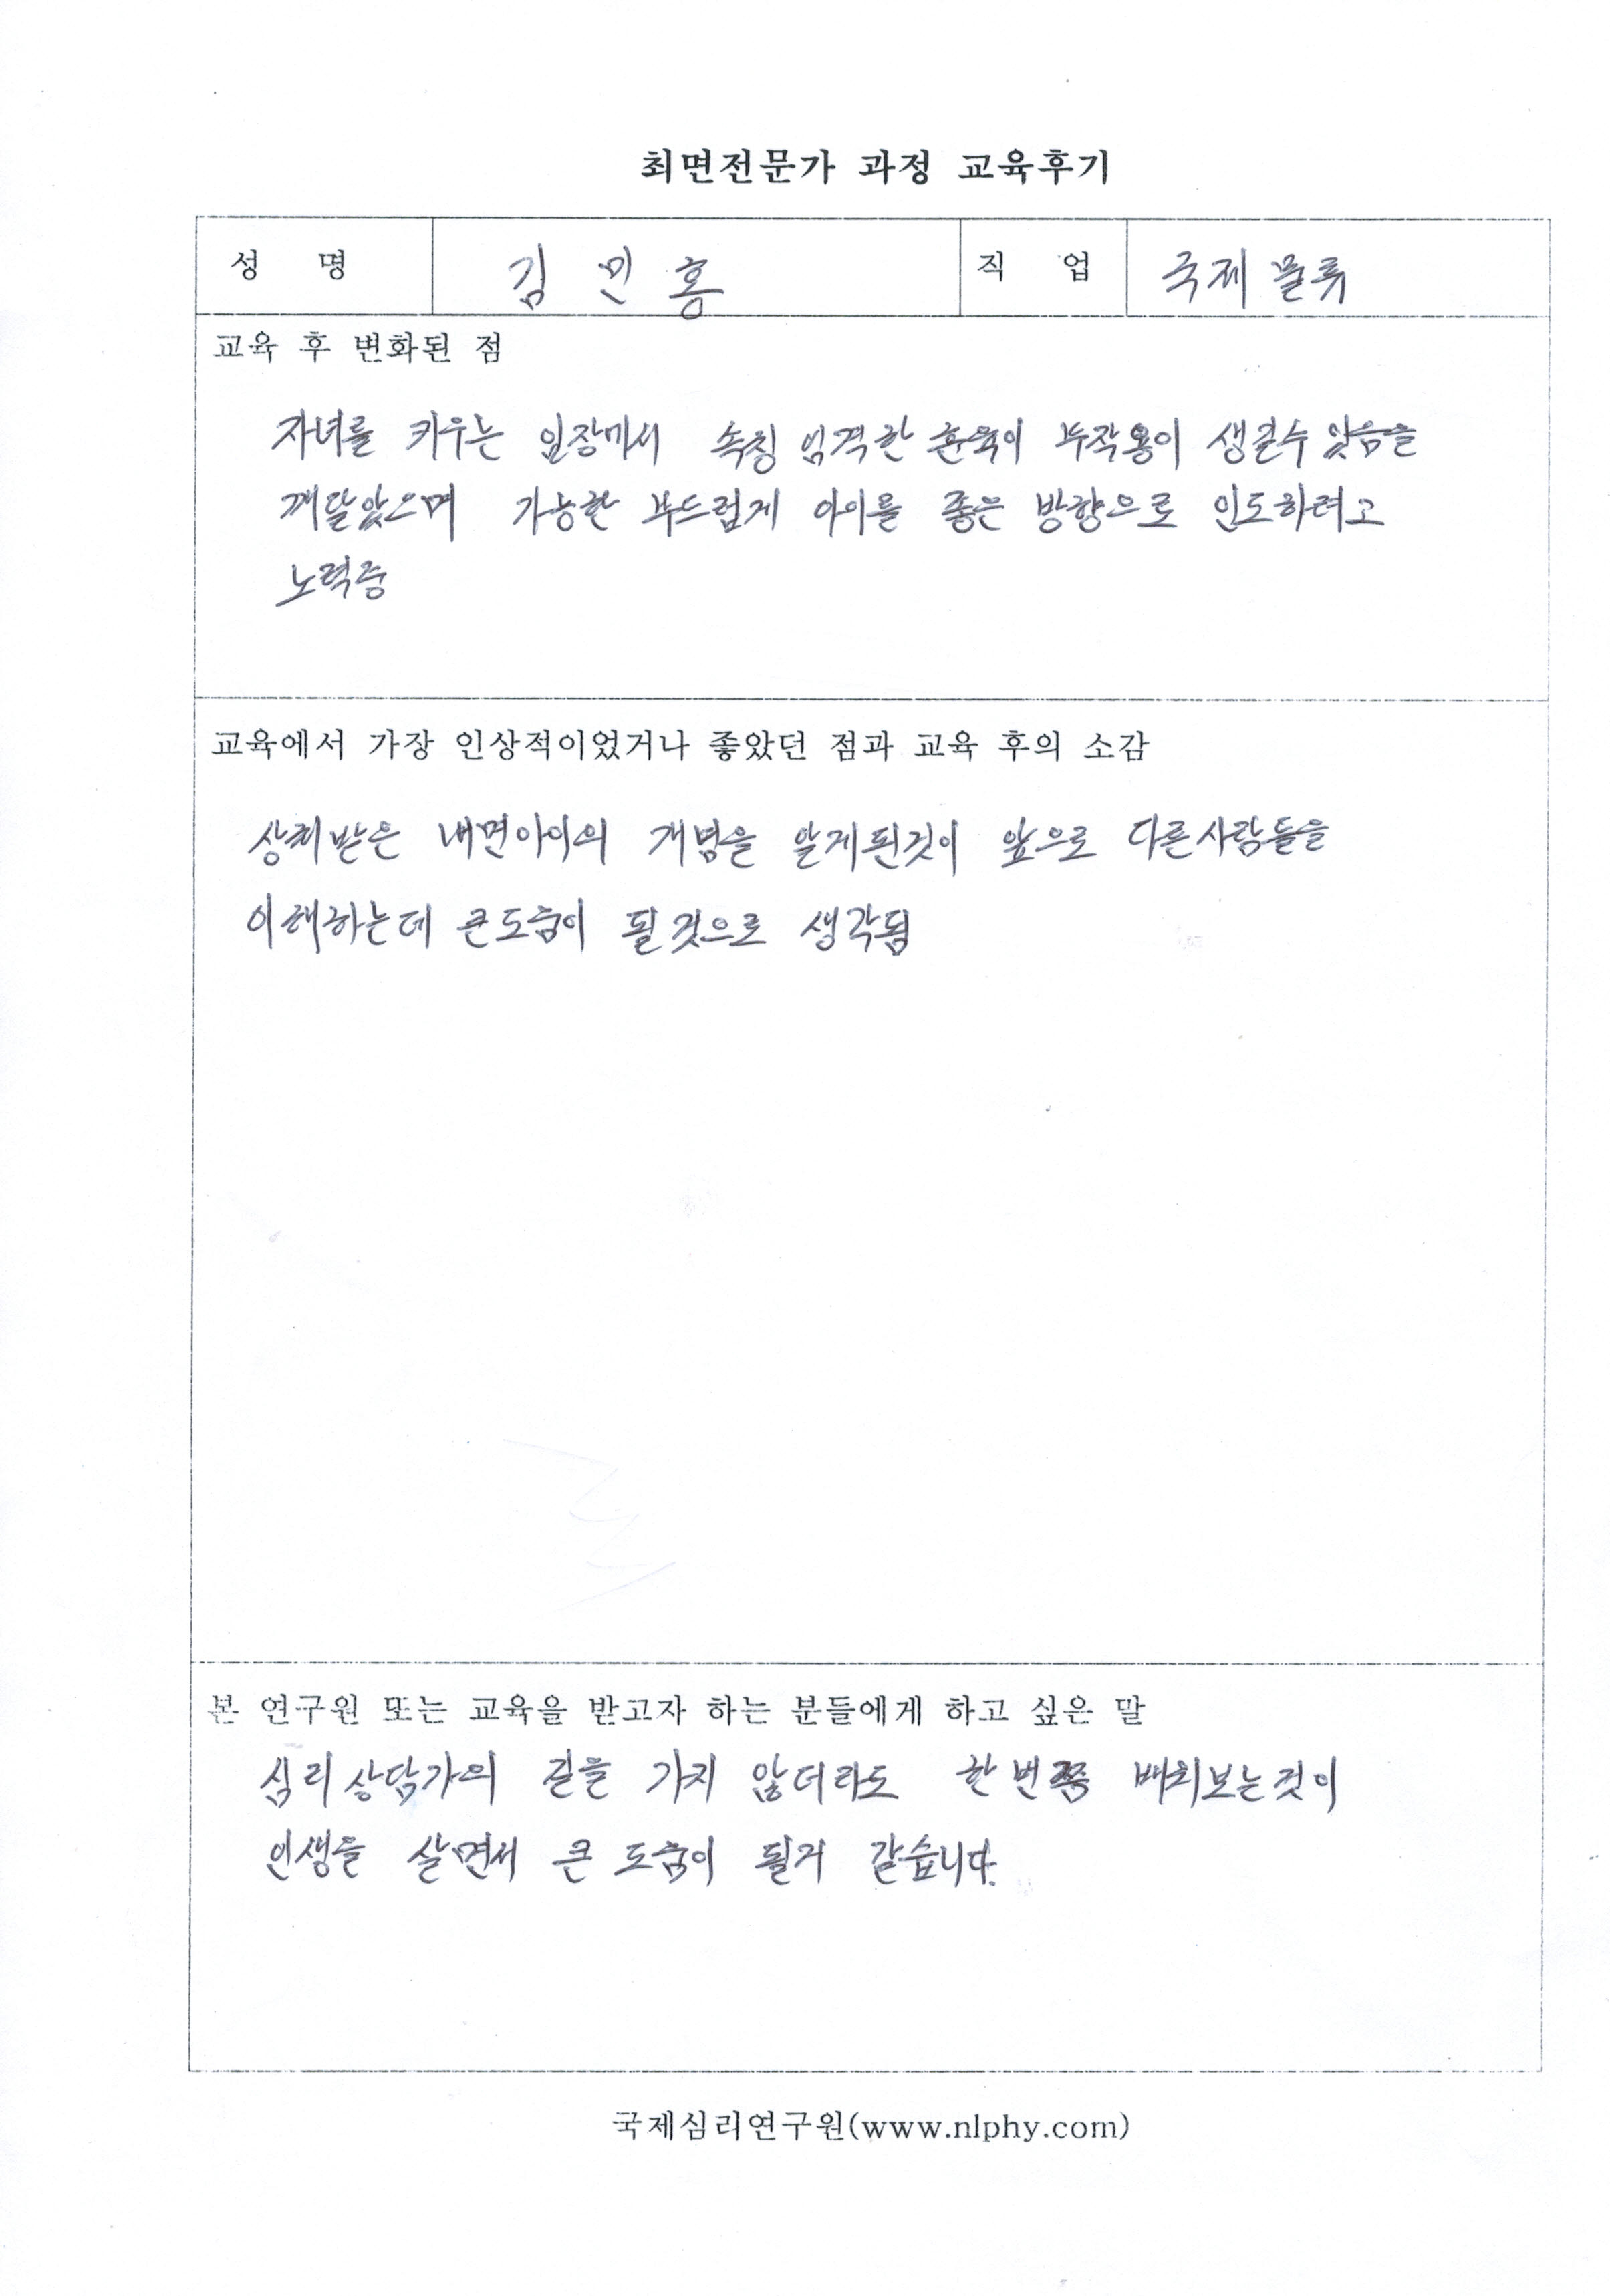 최면전문가 과정 교육후기
성 명 김 민 홍 직 업 국제 물류
교육 후 변화된 점
자녀를 키우는 입장에서 속칭 엄격한 훈육이 부작용이 생길수 있음을
깨달았으며 가능한 부드럽게 아이를 좋은 방향으로 인도하려고
노력중
교육에서 가장 인상적이었거나 좋았던 점과 교육 후의 소감
상처받은 내면아이의 개념을 알게된것이 앞으로 다른사람들을
이해하는데 큰도움이 될것으로 생각됨
본 연구원 또는 교육을 받고자 하는 분들에게 하고 싶은 말
심리상담가의 길을 가지 않더라도 한번쯤 배워보는것이
인생을 살면서 큰 도움이 될거 같습니다.
국제심리연구원(www.nlphy.com)